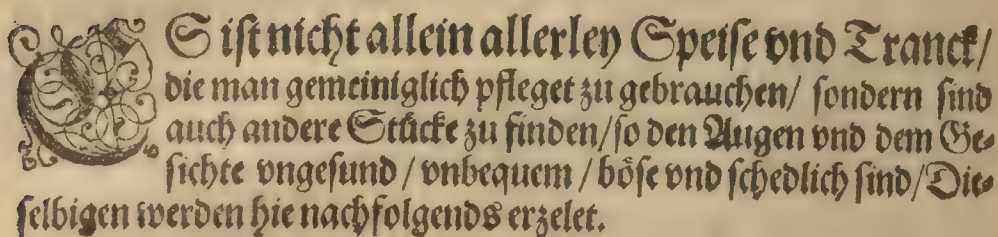 ES ist nicht allein allerley Speise vnd Tranck/
die man gemeiniglich pfleget zu gebrauchen/ sondern sind
auch andere Stücke zu finden/so den Augen vnd dem Ge-
sichte vngesund / vnbequem / böse vnd schedlich sind/Die-
selbigen werden hie nachfolgends erzelet.